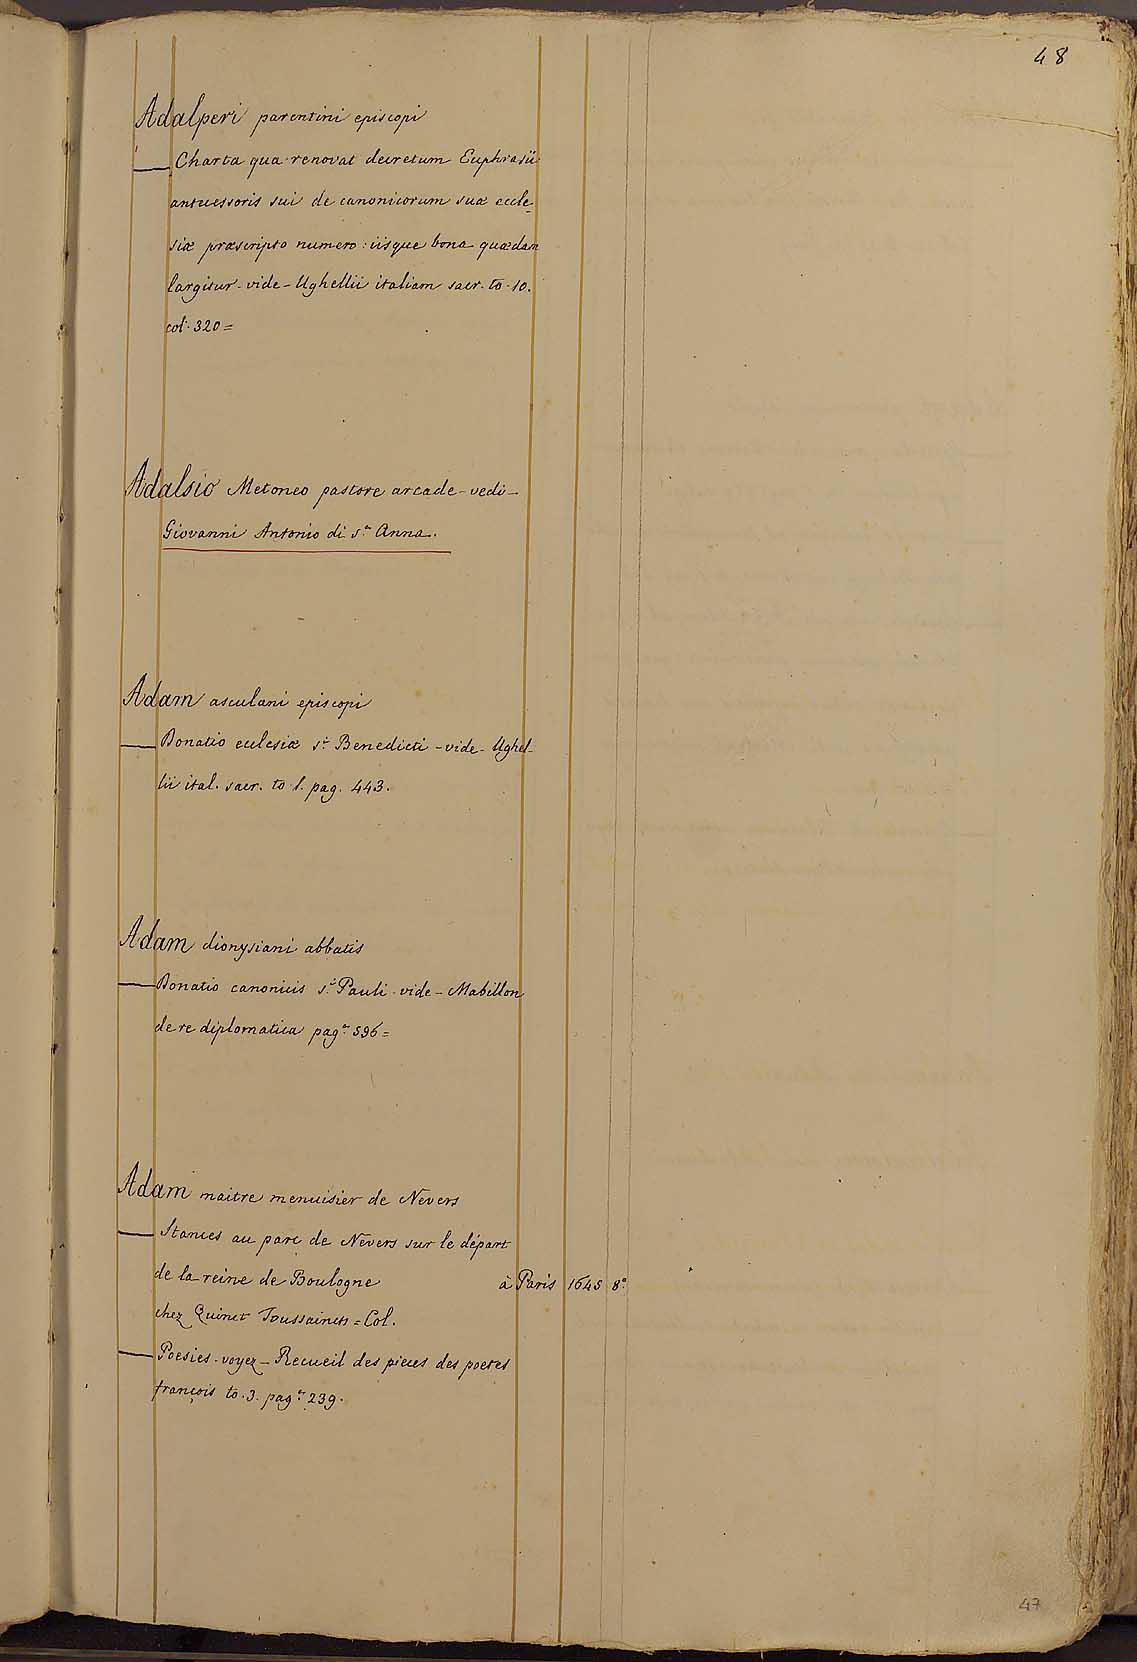 48
Adalperi parentini episcopi
— Charta qua renovat decretum Euphrasii
antecessoris sui de canonicorum suæ eccle-
siæ præscripto numero : iisque bona quædam
largitur - vide - Ughellii italiam sacr. to. 10.
col. 320 =
Adalsio Metoneo pastore arcade - vedi -
Giovanni Antonio di S.ta Anna.
Adam asculani episcopi
— Donatio ecclesiæ s.ti Benedicti - vide - Ughel-
lii ital. sacr. to 1. pag. 443.
Adam dionysiani abbatis
— Donatio canonicis s.ti Pauli - vide - Mabillon
de re diplomatica pag.a 596 =
Adam maitre menuisier de Nevers
— Stances au parc de Nevers sur le départ
de la reine de Boulogne à Paris 1645 8.o
chez Quinet Toussaincts = Col.
— Poesies - voyez - Recueil des pieces des poetes
françois to. 3. pag.a 239.
47